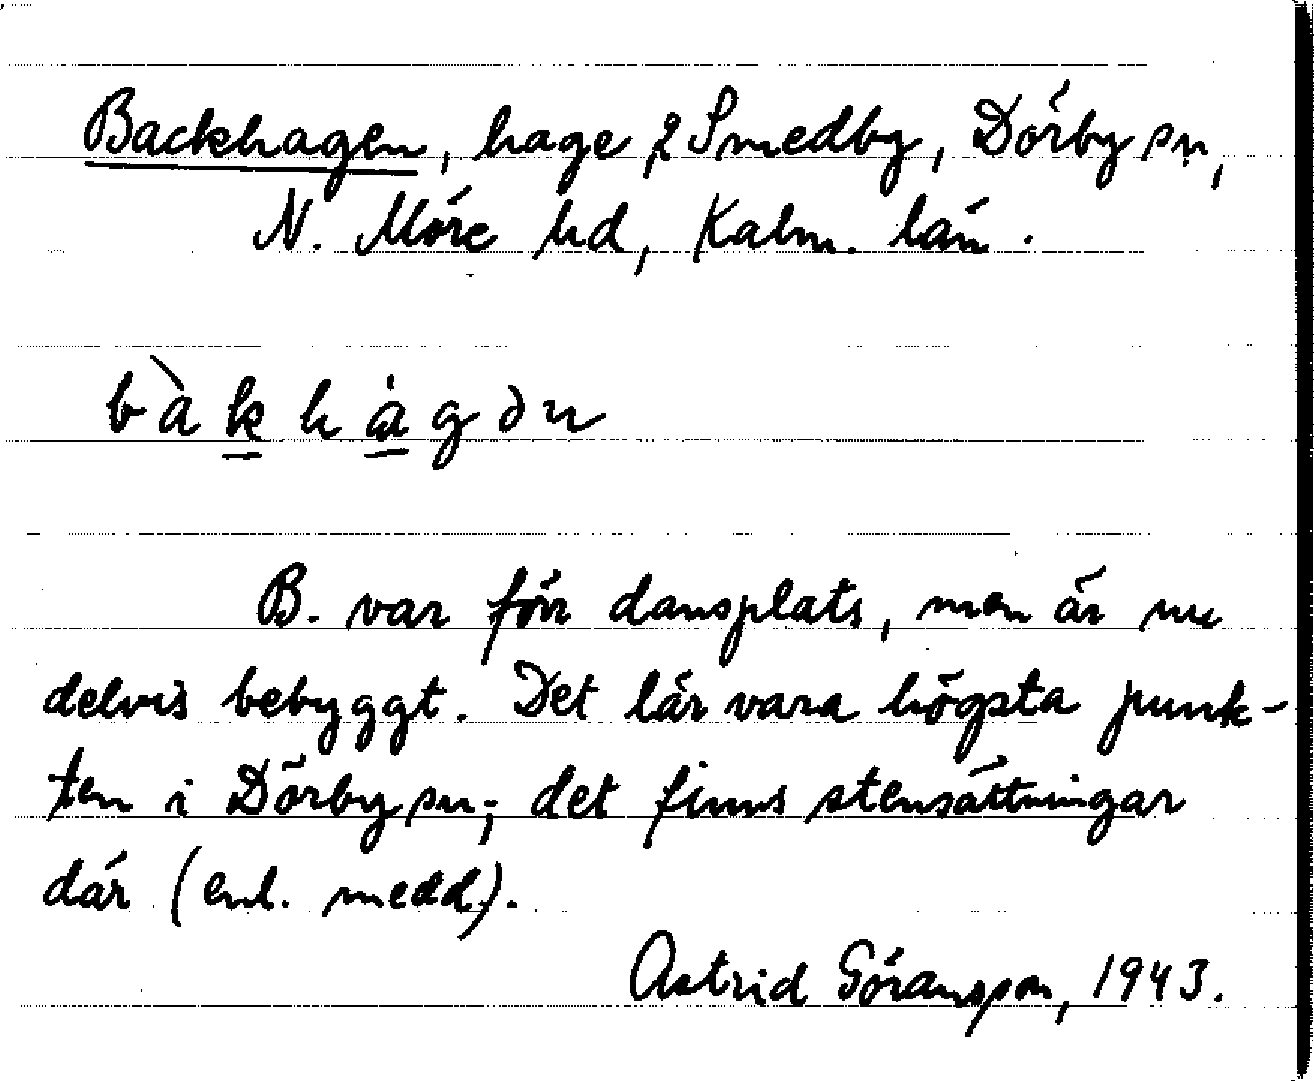 Backhagen, hage på Smedby, Dörby sn,
N. Möre hd, Kalm. län.
bàkhágən
B. var förr dansplats, men är nu
delvis bebyggt. Det lär vara högsta punk-
ten i Dörby sn; det finns stensättningar
där (enl. medd.).
Astrid Göransson, 1943.